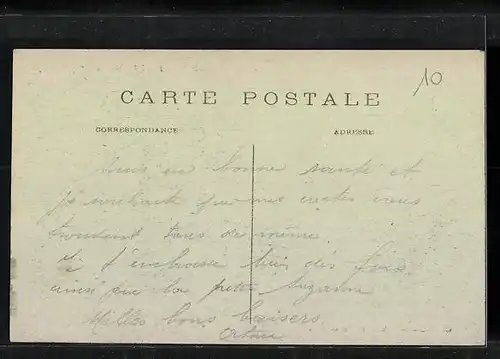 10
CARTE POSTALE
CORRESPONDANCE ADRESSE
suis en bonne santé et
je souhaite que mes cartes vous
trouvent tous de même.
je t'embrasse bien des fois
ainsi que la petite Suzanne
Milles bons baisers